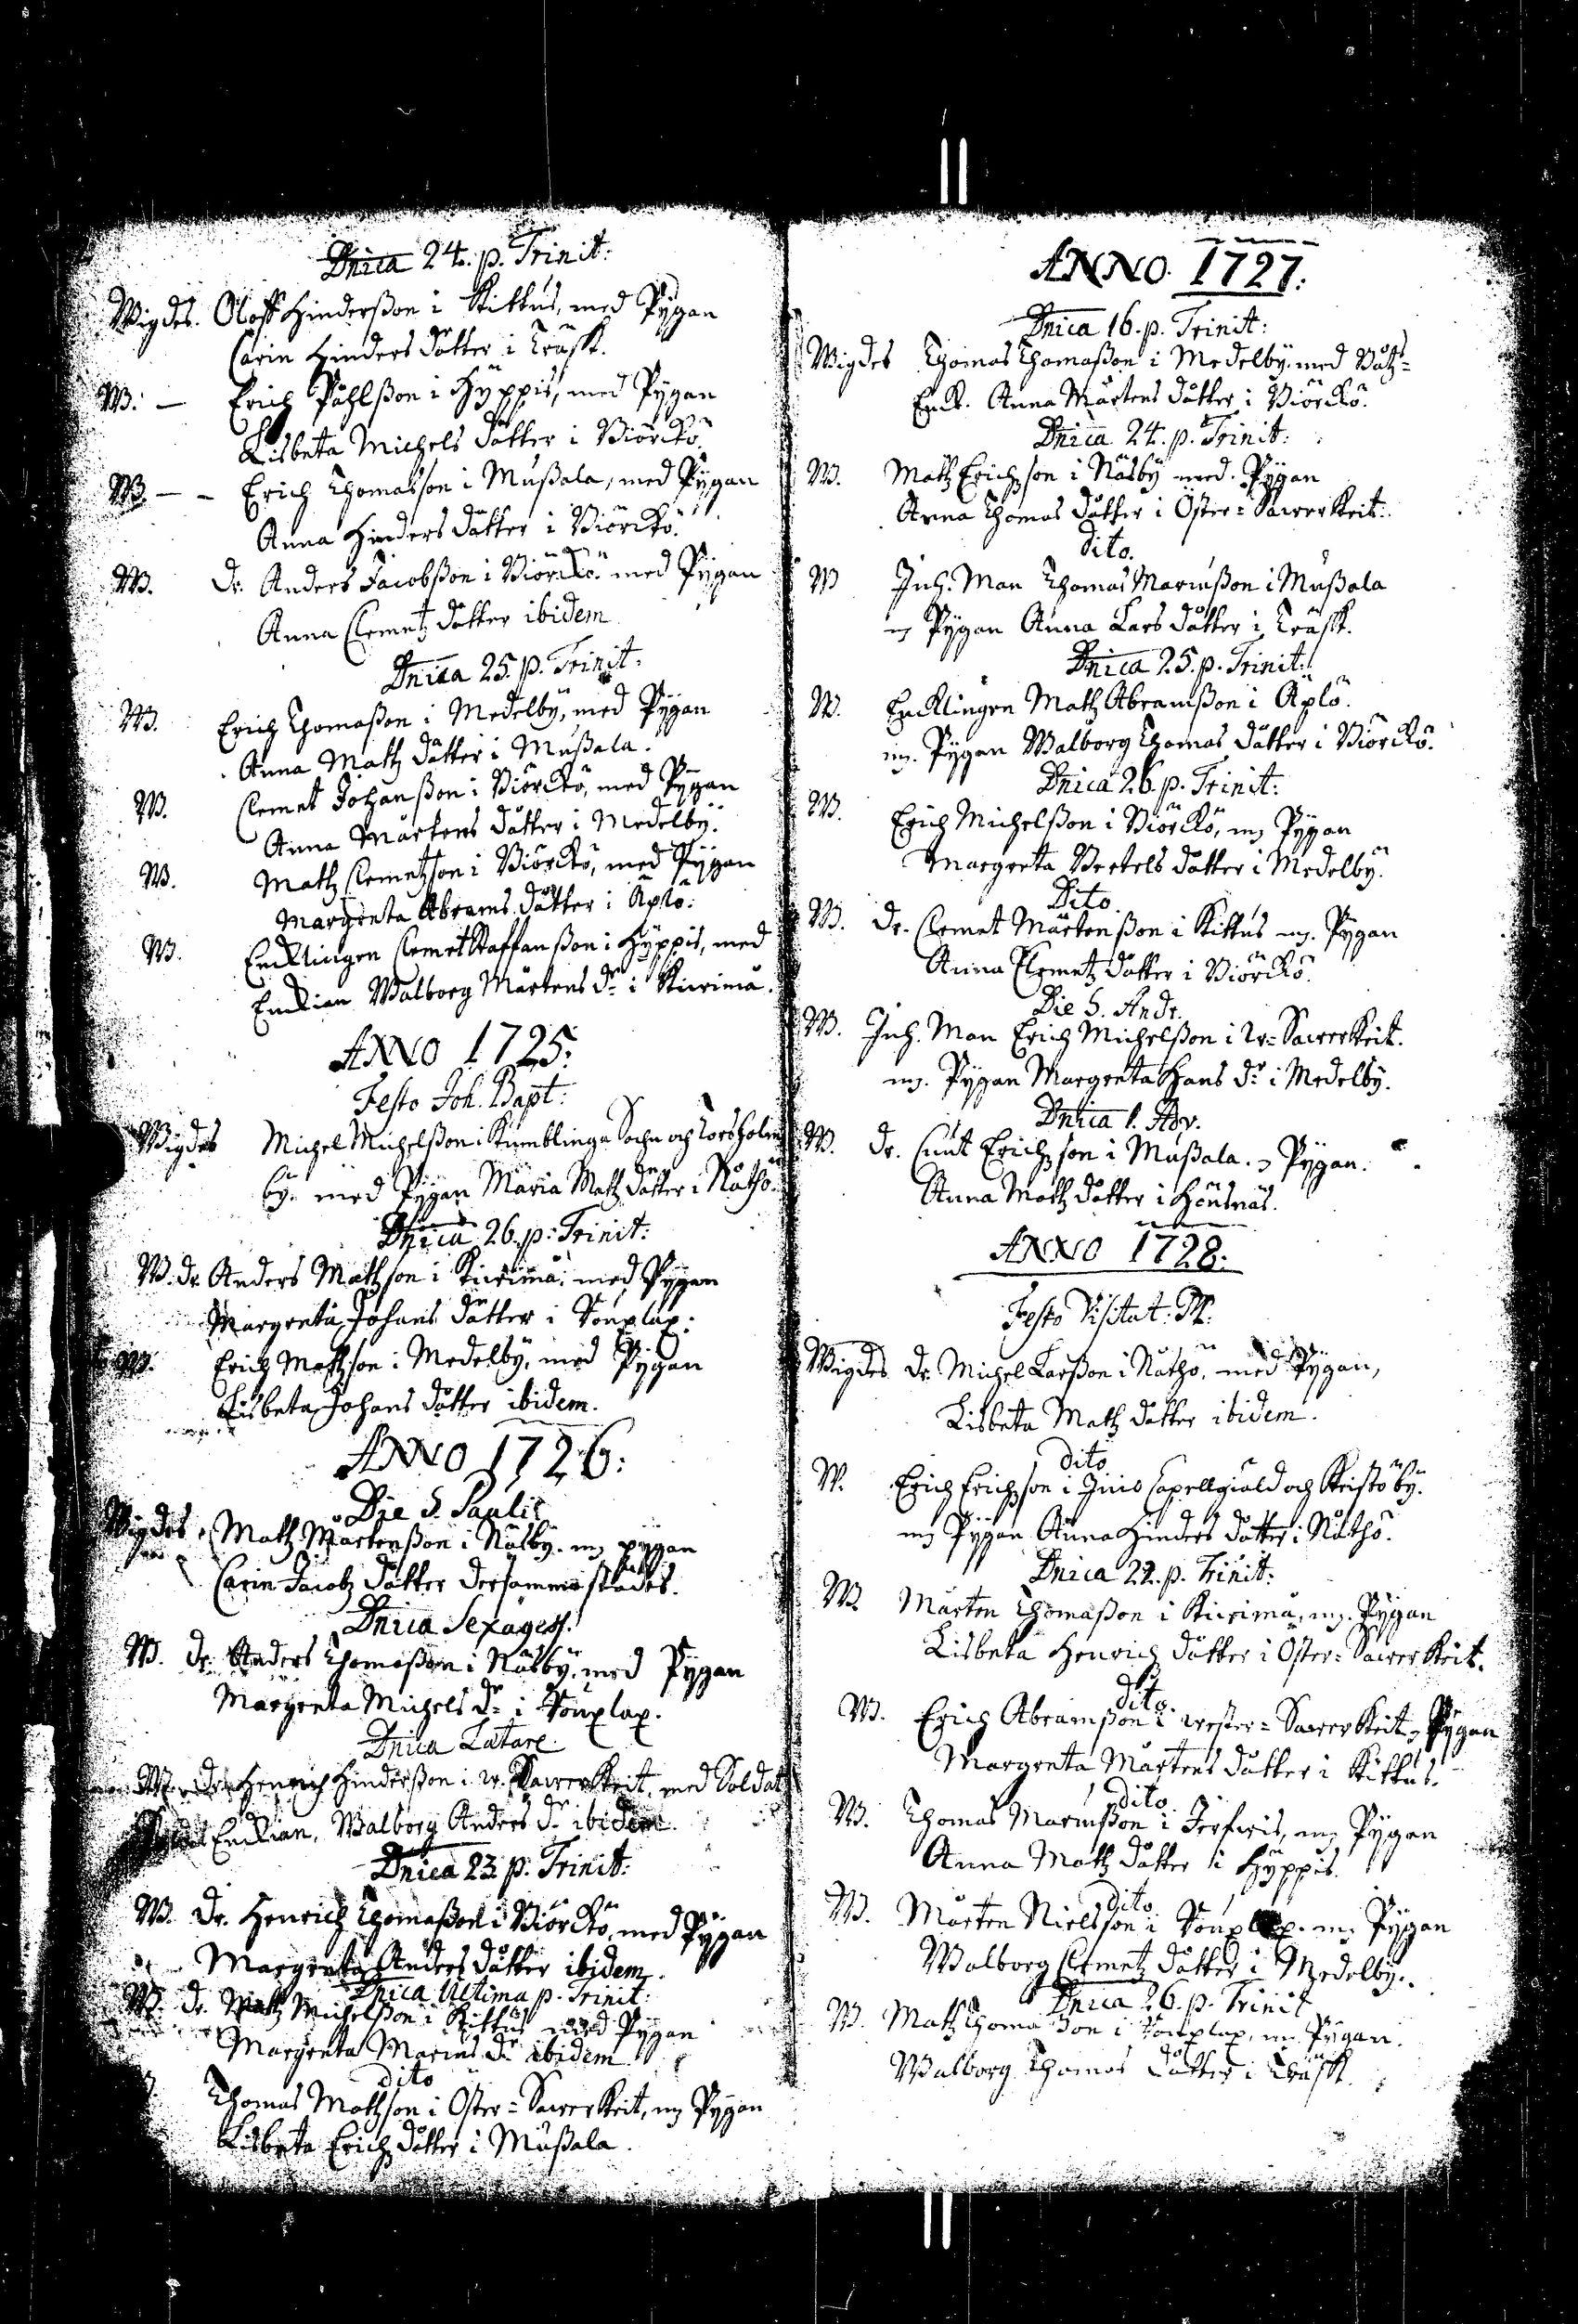 Dnica 24. p. Trinit:
Wigdes. Oloff Hindersßon i Kittus, med Pÿgan
Carin Hinders dåtter i Träsk.
W. — Erich Påhlßon i Hÿppis, med Pÿgan
Lisbeta Michels dåtter i Biörckö.
W. — — Erich Thomasson i Mußala, med Pÿgan
Anna Hinders dåtter i Biörckö.
W. dr. Anders Jacobßon i Biörckö. med Pÿgan
Anna Clemetz dåtter ibidem
Dnica 25. p. Trinit:
W. Erich Thomaßon i Medelbÿ, med Pÿgan
Anna Matz dåtter i Mußala.
W. Clemet Johanßon i Biörckö, med Pÿgan
Anna Mårtens dåtter i Medelbÿ.
W. Matz Clemetzson i Biörckö, med Pÿgan
Margreta Abrams dåtter i Äplö.
W. Encklingen Clemet Staffanßon i Hÿppis, med
Enckian Walborg Mårtens dr i Kiurima.
ANNO 1725:
Festo Joh. Bapt:
Wigdes Michel Michelßon i Kumblinge Sochn och Torsholm
by. med Pÿgan Maria Matz dåtter i Nåthö.
Dnica 26. p. Trinit:
W. dr. Anders Matzson i Kiurima, med Pÿgan
Margreta Johans dåtter i
W. Erich Matzson i Medelbÿ, med Pÿgan
Lisbeta Johans dåtter ibidem.
ANNO 1726:
Die S. Pauli
Wigdes. Matz Mårtenßon i Näsbÿ. m. pÿgan
Carin Jacobz dåtter dersammastädes.
Dnica Sexages.
W. dr. Anders Thomaßon i Näsbÿ. med Pÿgan
Margreta Michels dr i
Dnica Latare.
W. dr. Henrich Hinderßon i w. Sawerkeit, med Soldat
Enckian, Walborg Anders dr ibidem.
Dnica 23 p. Trinit:
W. dr. Henrich Thomaßon i Biörckö, med Pÿgan
Margreta Anders dåtter ibidem.
Dnica Ultima p. Trinit:
W. dr. Matz Michelßon i Kittus med Pÿgan
Margreta Marius dr ibidem
dito
Thomas Matzson i Öster=Sawerkeit, m. Pÿgan
Lisbeta Erichz dåtter i Mußala.
ANNO 1727:
Dnica 16. p. Trinit:
Wigdes Thomas Thomaßon i Medelbÿ. med Båtz=
Enck. Anna Mårtens dåtter i Biörckö.
Dnica 24. p. Trinit:
W. Matz Erichzson i Näsbÿ med. Pÿgan
Anna Thomas dåtter i Öster=Sawerkeit.
dito.
W Inh. Man Thomas Mariusßon i Mußala
m Pÿgan Anna Lars dåtter i Träsk.
Dnica 25. p. Trinit:
W. Encklingen Matz Abramßon i Äplö.
m. Pÿgan Walborg Thomas dåtter i Biörckö.
Dnica 26. p. Trinit:
W. Erich Michelßon i Biörckö, m. Pÿgan
Margreta Bertels dåtter i Medelbÿ.
Dito.
W. dr. Clemet Mårtenßon i Kittus m. Pÿgan
Anna Clemetz dåtter i Biörckö.
Die S. Andr.
W. Inh. Man Erich Michelßon i w=Sawerkeit.
m. Pÿgan Margreta Hans dr i Medelbÿ.
Dnica 1. Adv.
W. dr. Cnut Erichzson i Mußala. m Pÿgan.
Anna Matz dåtter i Hönsnäs.
ANNO 1728:
Festo Visitat: M:
Wigdes dr. Michel Larßon i Nåthö, med Pÿgan,
Lisbeta Matz dåtter ibidem.
dito
W. Erich Erichzson i Inio Capellgiäld och Keistöbÿ.
m Pÿgan Anna Hinders dåtter i Nåthö.
Dnica 22. p. Trinit:
W. Mårten Thomaßon i Kiurima, m. Pÿgan
Lisbeta Henrich dåtter i Öster=Sawerkeit.
dito
W. Erich Abramßon i wester=Sawerkeit, m Pÿgan
Margreta Mårtens dåtter i Kittus.
dito
W. Thomas Mariusßon i Jerfwis, m. Pÿgan
Anna Matz dåtter i Hÿppis.
dito
W. Mårten Nielsson i m. Pÿgan
Walborg Clemetz dåtter i Medelbÿ.
Dnica 26. p. Trinit
W. Matz Thomaßon i m. Pÿgan.
Walborg Thomas dåtter i Träsk.